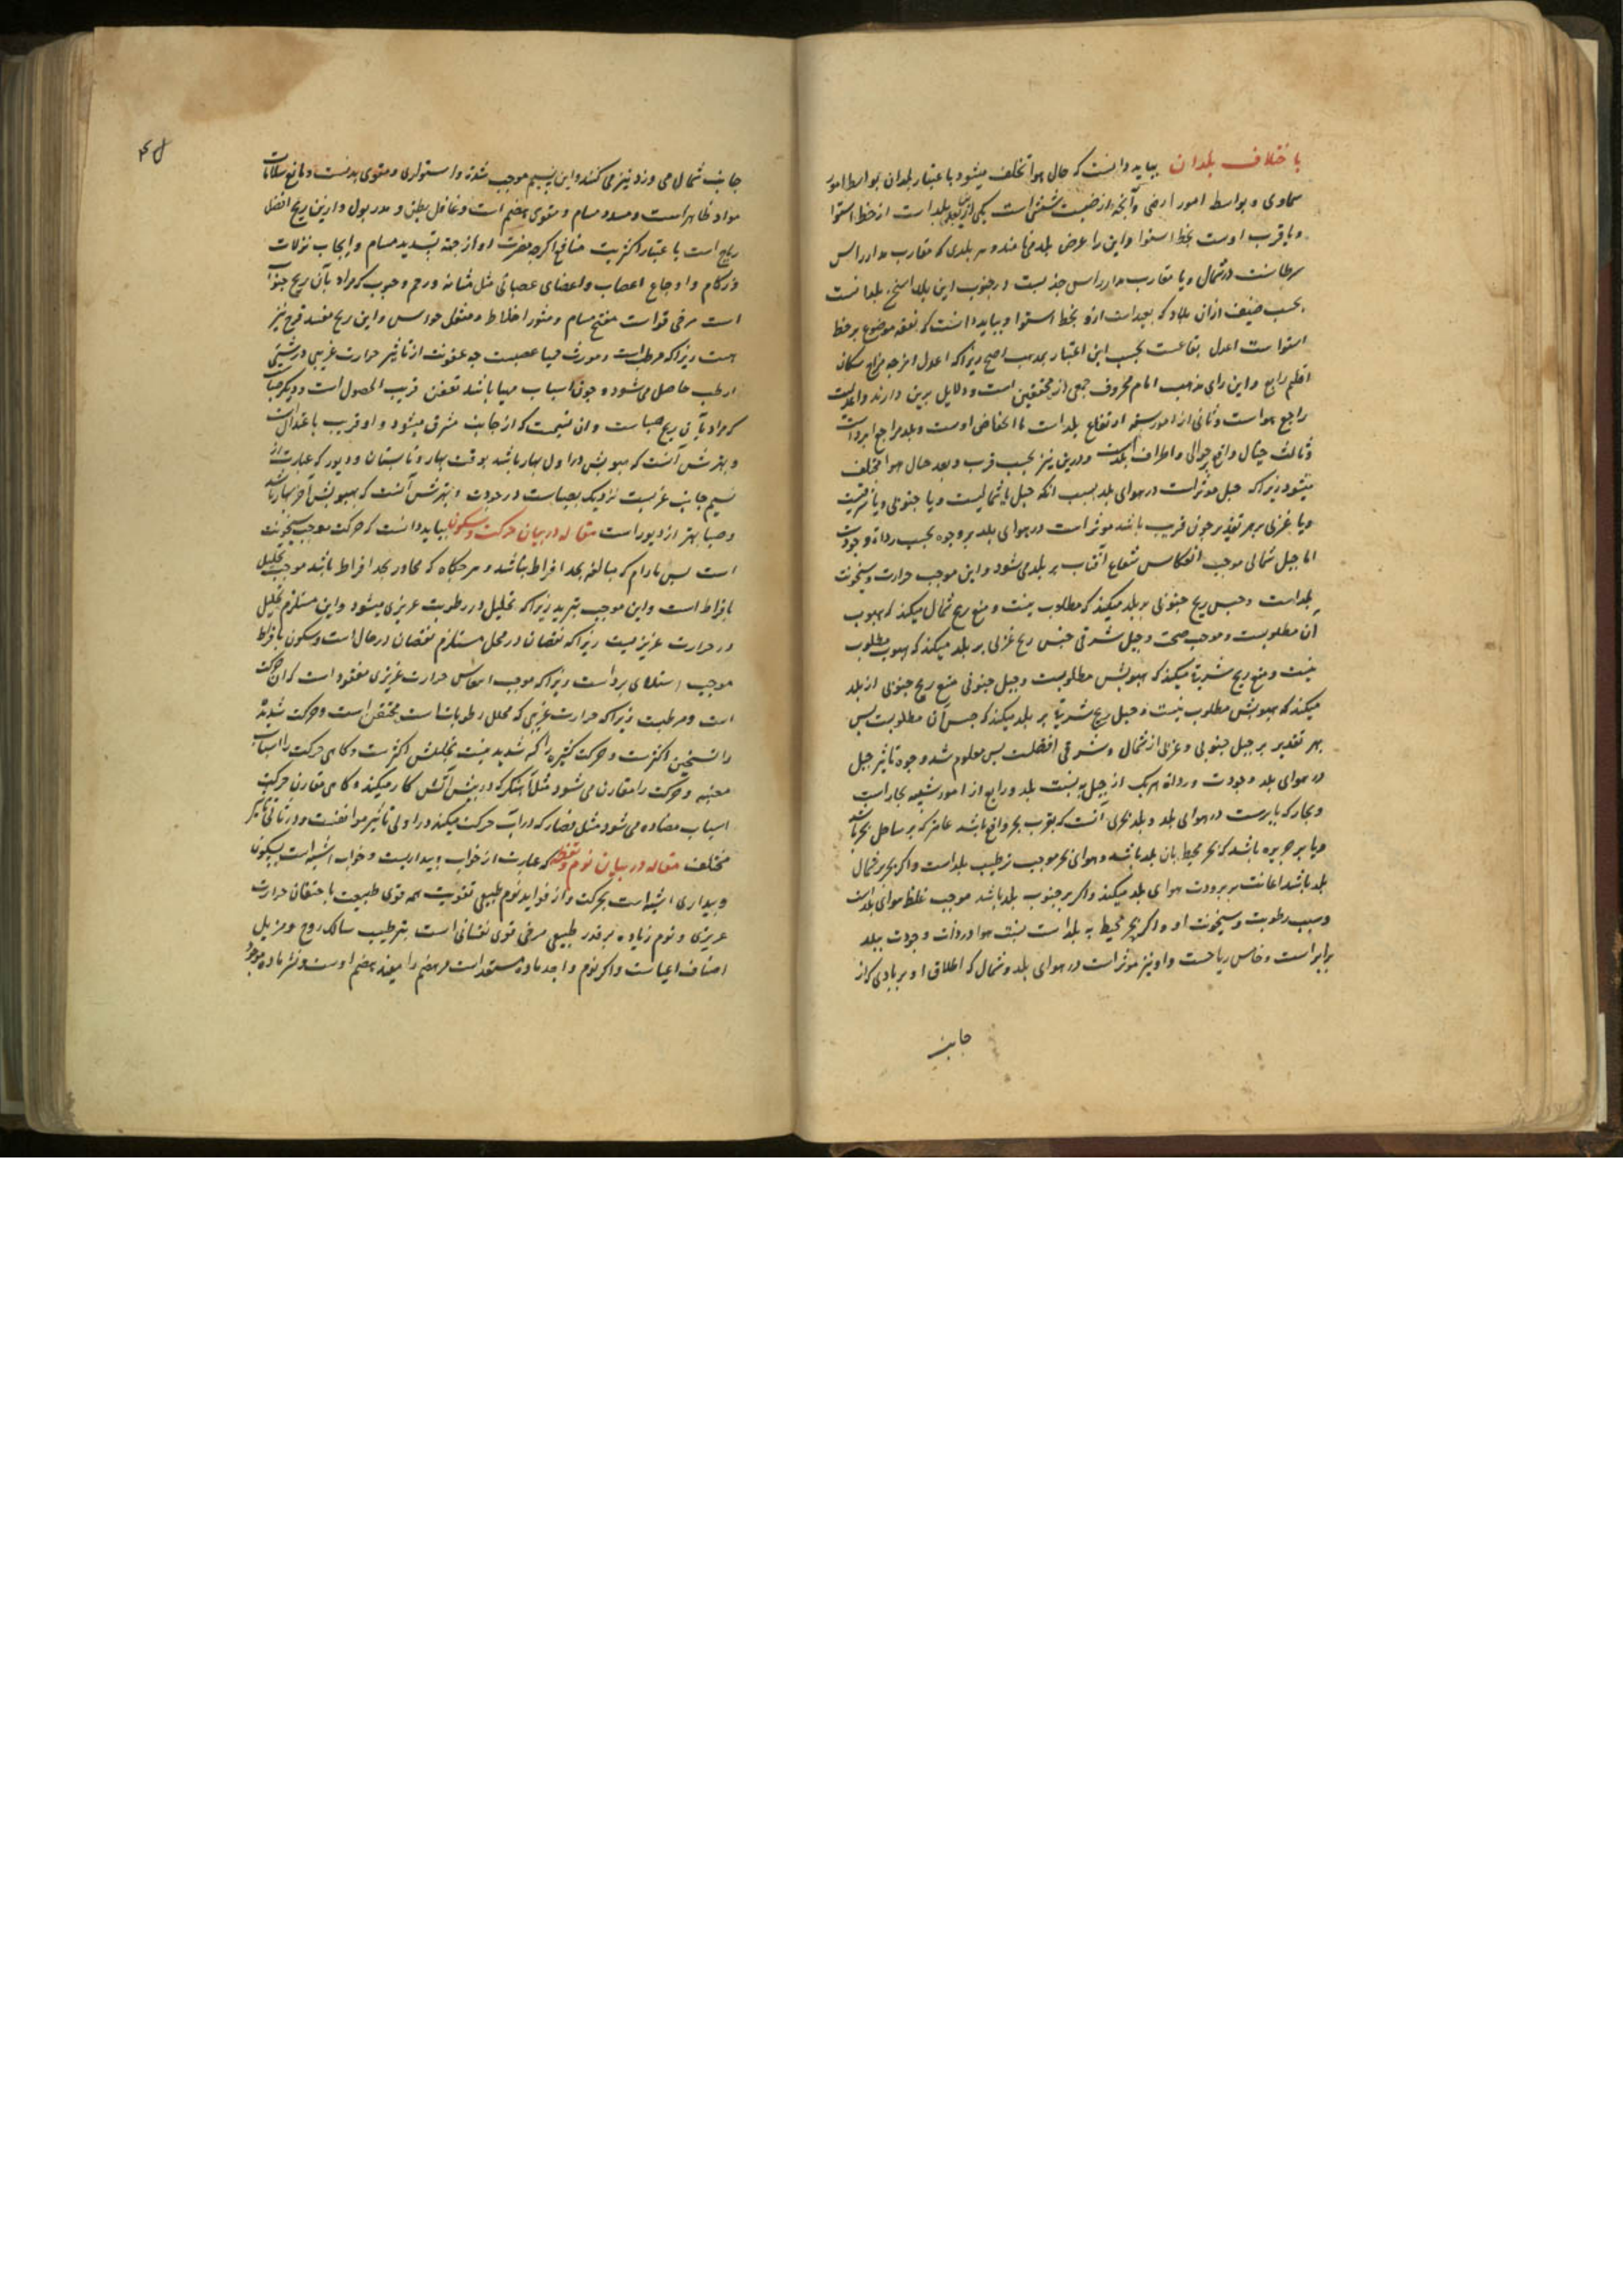 باختلاف بلدان بباید دانست که حال هوا مختلف میشود باعتبار بلدان بواسطه امور
سماوی و بواسطه امور ارضی و آنچه از ارضیست شش است یکی ازین بعد بلد است از خط استوا
و یا قرب اوست بخط استوا و این را عرض بلد می نامند و هر بلدی که مقارب مدار راس
سرطانست در شمال و یا مقارب مدار راس جدیست در جنوب این بلد اسخن بلدانست
بحسب صیف از آن بلاد که بعید است ازو بخط استوا و بباید دانست که بقعه موضوع بر خط
استواست اعدل بقاعست بحسب این اعتبار بمذهب اصح زیرا که اعدل امزجه مزاج سکان
اقلیم رابع و این رای مذهب امام معروف جمعی از محققین است و دلایل برین دارند و
راجع هواست و ثانی از امور سته ارتفاع بلد است یا انخفاض اوست و بلد مرتفع ابرد است
و ثالث جبال واقع بر حوالی و اطراف بلد است و درین نیز بحسب قرب و بعد حال هوا مختلف
میشود زیرا که جبل موثر است در هوای بلد بسبب آنکه جبل یا شمالیست و یا جنوبی و یا شرقیست
و یا غربی بر هر تقدیر چون قریب باشد موثر است در هوای بلد بر وجوه بحسب ردائة و جودت
اما جبل شمالی موجب انعکاس شعاع آفتاب بر بلد می شود و این موجب حرارت و سخونت
بلد است و حبس ریح جنوبی بر بلد میکند که مطلوب نیست و منع ریح شمال میکند که هبوب
آن مطلوبست و موجب صحت و جبل شرقی حبس ریح غربی بر بلد میکند که هبوب مطلوب
نیست و منع ریح شرقیة میکند که هبوبش مطلوبست و جبل جنوبی منع ریح جنوبی از بلد
میکند که هبوبش مطلوب نیست و حبل ریح شرقیة بر بلد میکند که حبس آن مطلوبست پس
بهر تقدیر بر جبل جنوبی و غربی از شمال و شرقی افضلست پس معلوم شد وجوه تاثیر جبل
در هوای بلد و جودت و ردائة هر یک از جبل به نسبت بلد و رابع از امور سته بحار است
و بحار که مؤثرست در هوای بلد و بلد بحری آنست که بقرب بحر واقع باشد عام که بر ساحل بحر باشد
و یا بر جزیره باشد که بحر محیط بآن بلد باشد و هوای بحر موجب ترطیب بلد است و اگر بحر بر شمال
بلد باشد اعانت بر برودت هوای بلد میکند و اگر بر جنوب بلد باشد موجب غلظ هوای بلد است
و سبب رطوبت و سخونت او و اگر بحر محیط به بلد است نسبت هوا در ردائت و جودت ببلد
برابر است و خامس ریاحست و او نیز مؤثر است در هوای بلد و شمال که اطلاق او بر بادی که از
جانب
جانب شمال می وزد نیز می کنند و این نسیم موجب شدة و استواری و مقوی بدنست و مانع سیلانات
مواد ظاهراست و مسدد مسام و مقوی هضم است و عاقل بطن و مدر بول و ازین ریح افضل
ریاح است باعتبار اکثریت منافع اگر چه مضرت او از جهة تسدید مسام و ایجاب نزلات
و زکام و اوجاع اعصاب و اعضای عصبانی مثل مثانه و رحم و جنوب که مراد بآن ریح جنوب
است مرخی قواست مفتح مسام و مثور اخلاط و مثقل حواس و این ریح مفسد قروح نیز
هست زیرا که مرطب است و مورث حمیات عصبست چه عفونت از تاثیر حرارت غریبی در شیئی
ارطب حاصل می شود و چون اسباب مهیا باشد تعفن قریب الحصول است و دیگر صبا
که مراد بآن ریح صباست و آن نسیمست که از جانب مشرق میشود و او قریب باعتدالست
و بهترینش آنست که هبوبش در اول بهار باشد بوقت بهار و تابستان و دبور که عبارت از
نسیم جانب غربست نزدیک بصباست در جودت و بهترینش آنست که هبوبش آخر بهار باشد
و صبا بهتر از دبور است مقاله در بیان حرکت و سکون بباید دانست که حرکت موجب سخونت
است پس مادام که مبالغه بحد افراط نباشد و هرگاه که مجاوز بحد افراط باشد موجب تحلیل
بافراط است و این موجب تبرید زیرا که تحلیل در رطوبت غریزی میشود و این مستلزم تحلیل
در حرارت غریزیست زیرا که نقصان در محل مستلزم نقصان در حال است و سکون بافراط
موجب استیلای برد است زیرا که موجب انتعاش حرارت غریزی مفقود است که آن حرکت
است و مرطبت زیرا که حرارت غریبی که محلل رطوباتست محتقن است و حرکت شدیدة
را تسخین اکثرست و حرکت کثیره را که شدید نیست تحلیلش اکثرست و گاهی حرکت را اسباب
معینه و حرکت را مقارن می شود مثلا آهنگر که در پیش آتش کار میکند و گاهی مقارن حرکت
اسباب مضاده می شود مثل قصار که در آب حرکت میکند در اولی تاثیر موافقست و در ثانی تاثیر
مختلف مقاله در بیان نوم و یقظه که عبارت از خواب و بیداریست و خواب اشبه است بسکون
و بیداری اشبه است بحرکت و از فواید نوم طبیعی تقویت همه قوی طبیعت باحتقان حرارت
غریزی و نوم زیاده بر قدر طبیعی مرخی قوی نفسانی است بترطیب مسالک روح و مزیل
اصناف اعیاست و اگر نوم واجد ماده مستعد است مر هضم را معینه هضم اوست و نشر ماده موجود